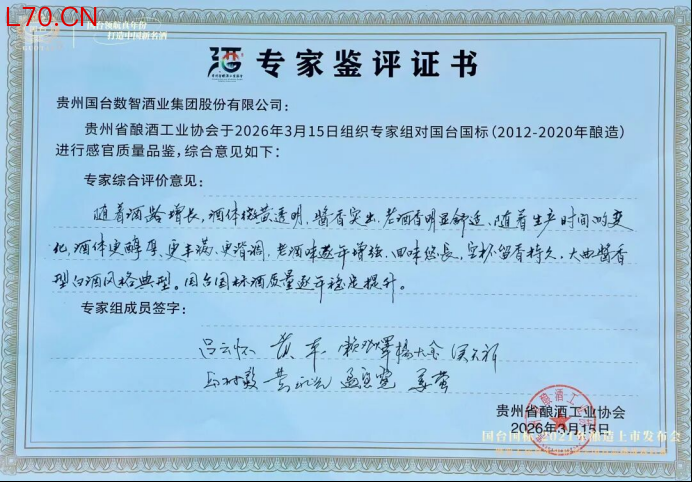 L70.CN
国台领航真年份
打造中国新名酒
酒 专家鉴评证书
贵州国台数智酒业集团股份有限公司：
贵州省酿酒工业协会于2026年3月15日组织专家组对国台国标（2012-2020年酿造）
进行感官质量品鉴，综合意见如下：
专家综合评价意见：
随着酒龄增长，酒体微黄透明，酱香突出，老酒香明显舒适，随着生产时间的变
化，酒体更醇厚、更丰满、更谐调，老酒味逐年增强，回味悠长，空杯留香持久，大曲酱香
型白酒风格典型。国台国标酒质量逐年稳定提升。
专家组成员签字：
吕云怀
贵州省酿酒工业协会
2026年3月15日
国台国标·2021年酿造上市发布会